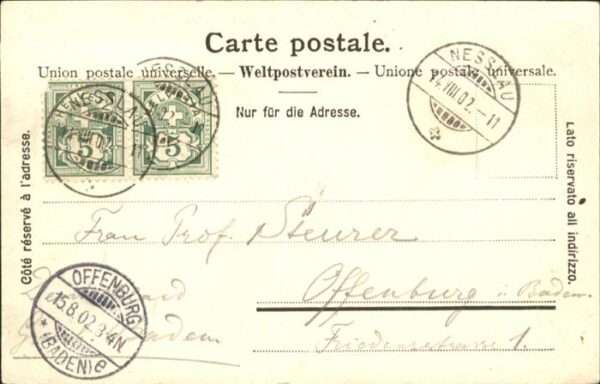 Carte postale.
Union postale universelle. — Weltpostverein. — Unione postale universale.
Nur für die Adresse.
Côté réservé à l'adresse.
Lato riservato all indirizzo.
NESSLAU
VIII 02.-11
NESSLAU
VIII 02
11
NESSLAU
5
5
Frau Prof. Steurer
Offenburg i. Baden.
Friedenstrasse 1.
Baden
OFFENBURG
15.8.02.3-4N.
* (BADEN) e